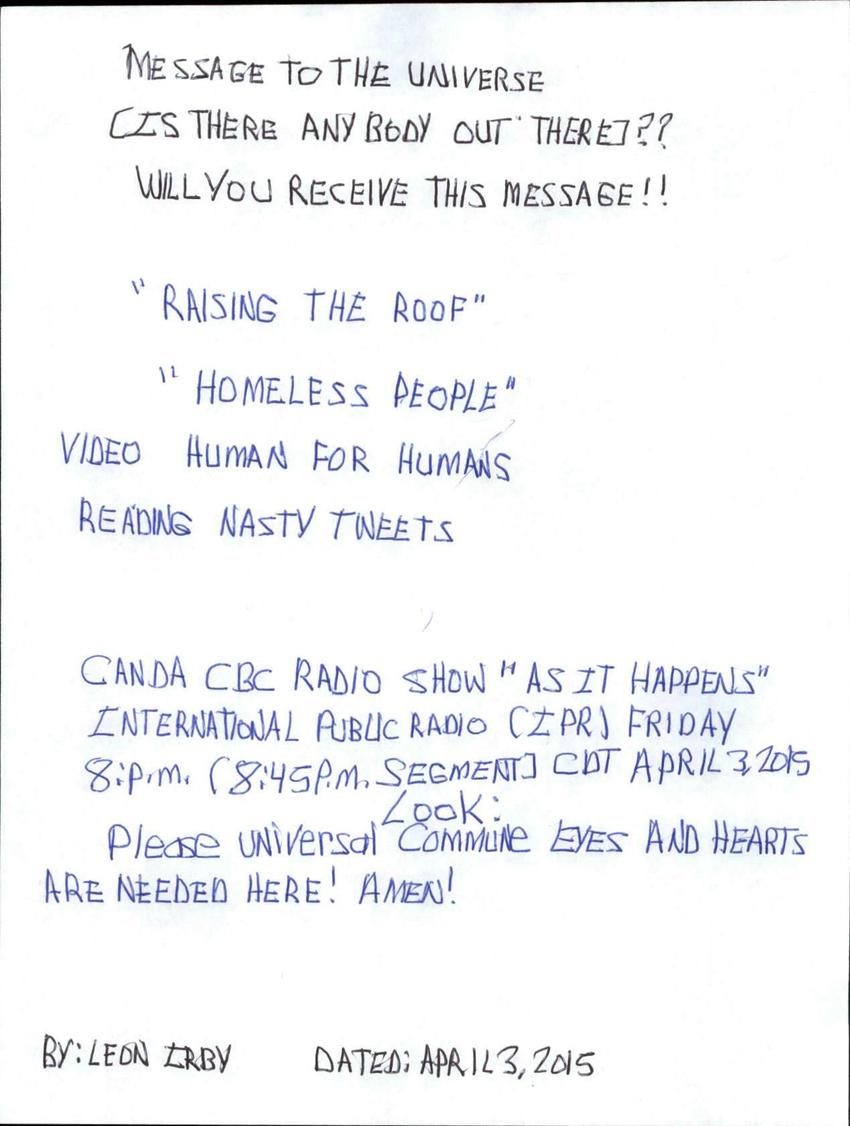 MESSAGE TO THE UNIVERSE
[IS THERE ANY BODY OUT THERE]??
WILL YOU RECEIVE THIS MESSAGE!!
"RAISING THE ROOF"
"HOMELESS PEOPLE"
VIDEO HUMAN FOR HUMANS
READING NASTY TWEETS
CANDA CBC RADIO SHOW "AS IT HAPPENS"
INTERNATIONAL PUBLIC RADIO (IPR) FRIDAY
8:P.M. (8:45P.M. SEGMENT] CDT APRIL 3, 2015
LOOK:
Please UNIVERSAL COMMUNE EYES AND HEARTS
ARE NEEDED HERE! AMEN!
BY: LEON IRBY DATED: APRIL 3, 2015